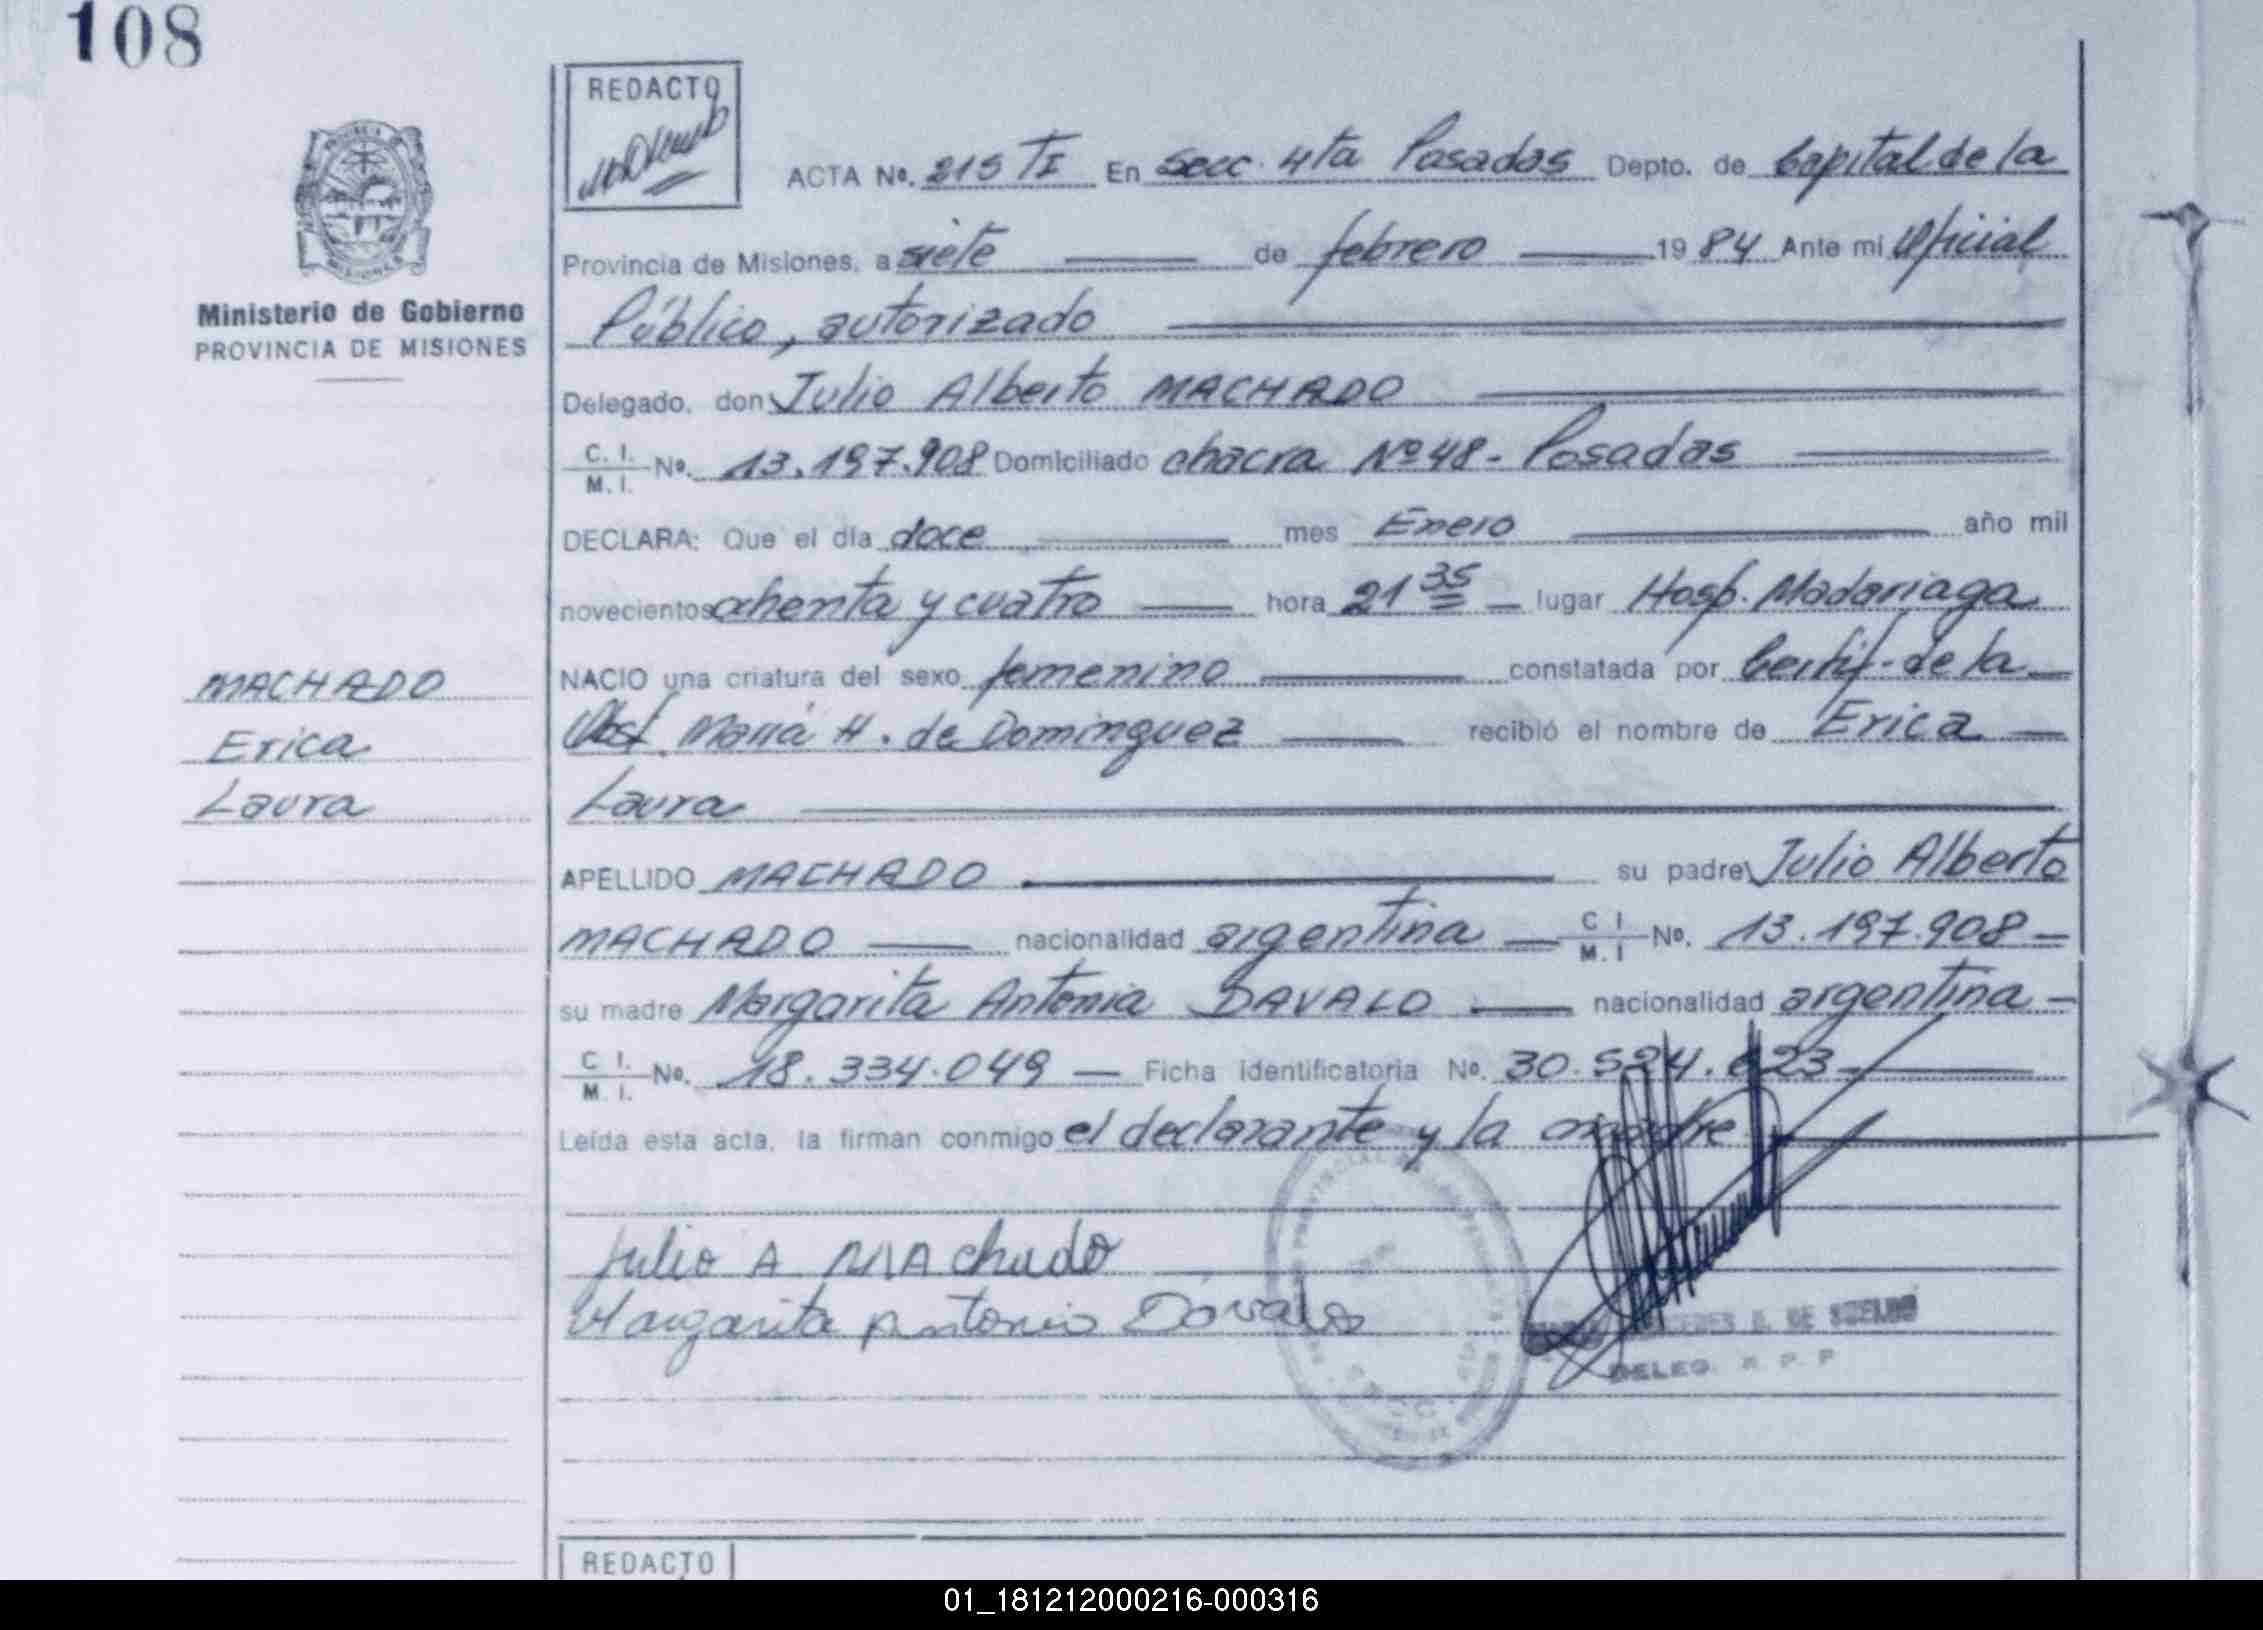 108
REDACTO
ACTA Nº. 215 TI En Secc. 4ta Posadas Depto. de Capital de la
Provincia de Misiones, a siete de febrero 1984 Ante mi Oficial
Ministerio de Gobierno
PROVINCIA DE MISIONES
Público, autorizado
Delegado, don Julio Alberto MACHADO
C. I. M. I. Nº. 13.197.908 Domiciliado chacra Nº 48 - Posadas
DECLARA: Que el día doce mes Enero año mil
novecientos ochenta y cuatro hora 21 35 lugar Hosp. Madariaga
NACIO una criatura del sexo femenino constatada por Certif. de la
Obst. María H. de Dominguez recibió el nombre de Erica
Laura
MACHADO
Erica
Laura
APELLIDO MACHADO su padre Julio Alberto
MACHADO nacionalidad argentina C I M. I Nº. 13.197.908
su madre Margarita Antonia DAVALO nacionalidad argentina
C I. M. I. Nº. 18.334.049 Ficha identificatoria Nº. 30.524.623
Leída esta acta, la firman conmigo el declarante y la madre
Julio A MAchado
Margarita Antonia Dávalo
DE SUELDO
DELEG. R. P. P
REDACTO
01_181212000216-000316